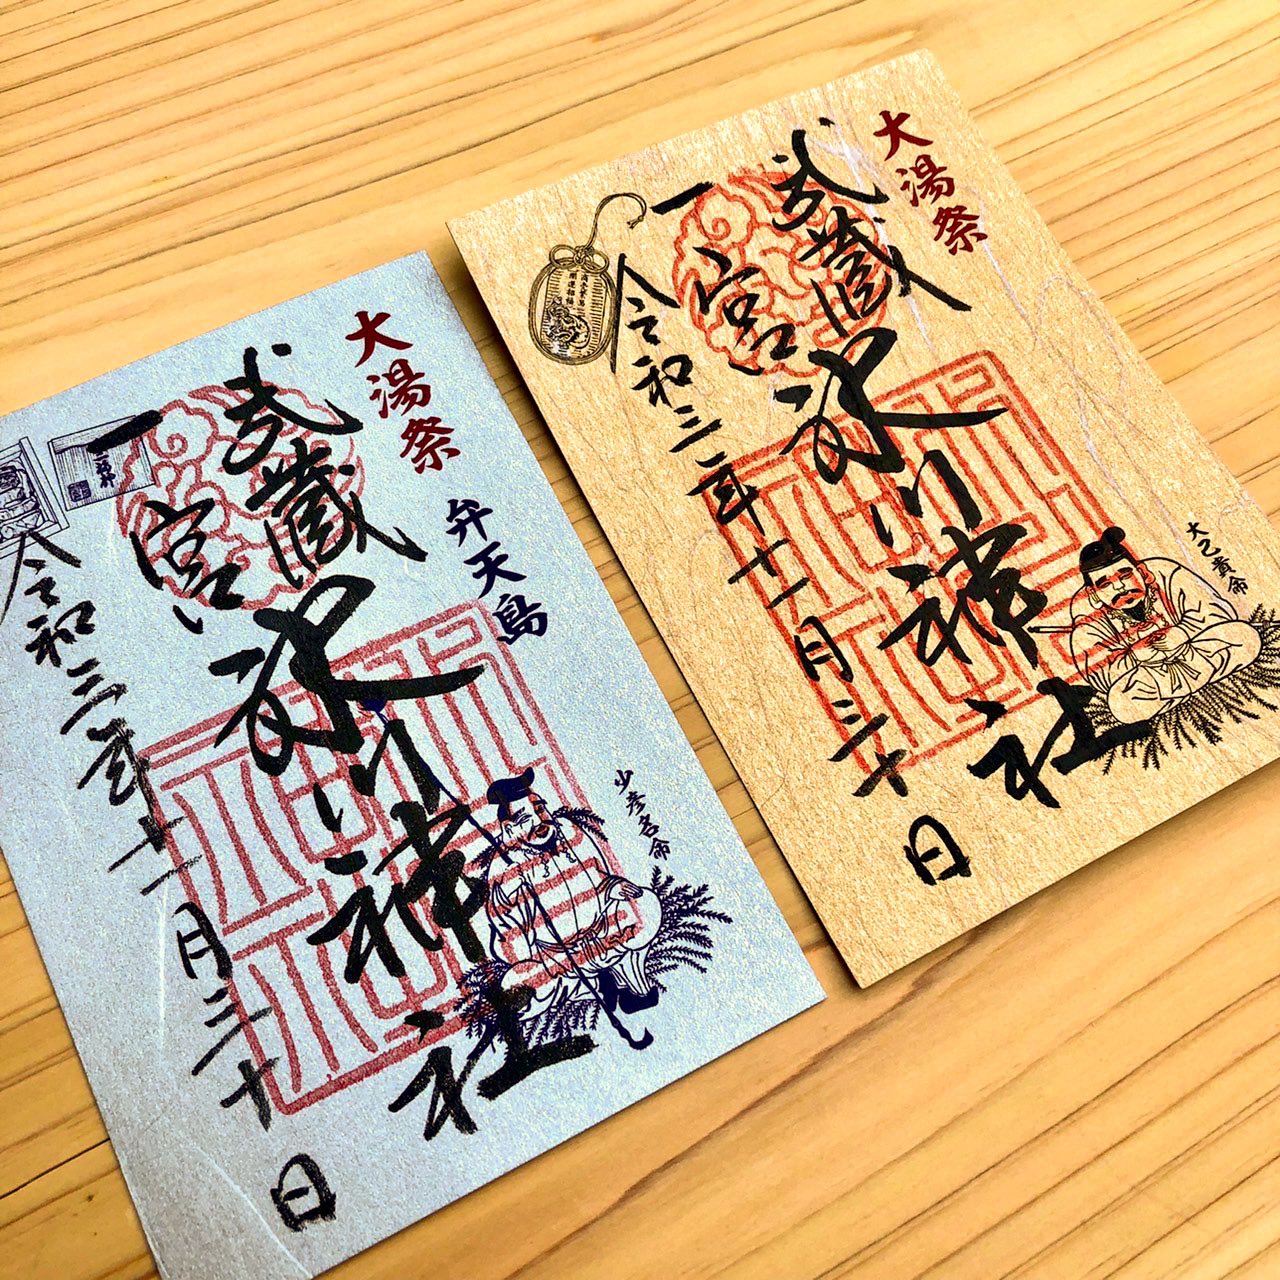 大湯祭
弁天島
武蔵
一宮
氷川神社
令和三年十一月三十日
少彦名命
大湯祭
武蔵
一宮
氷川神社
令和三年十一月三十日
大己貴命
開運招福